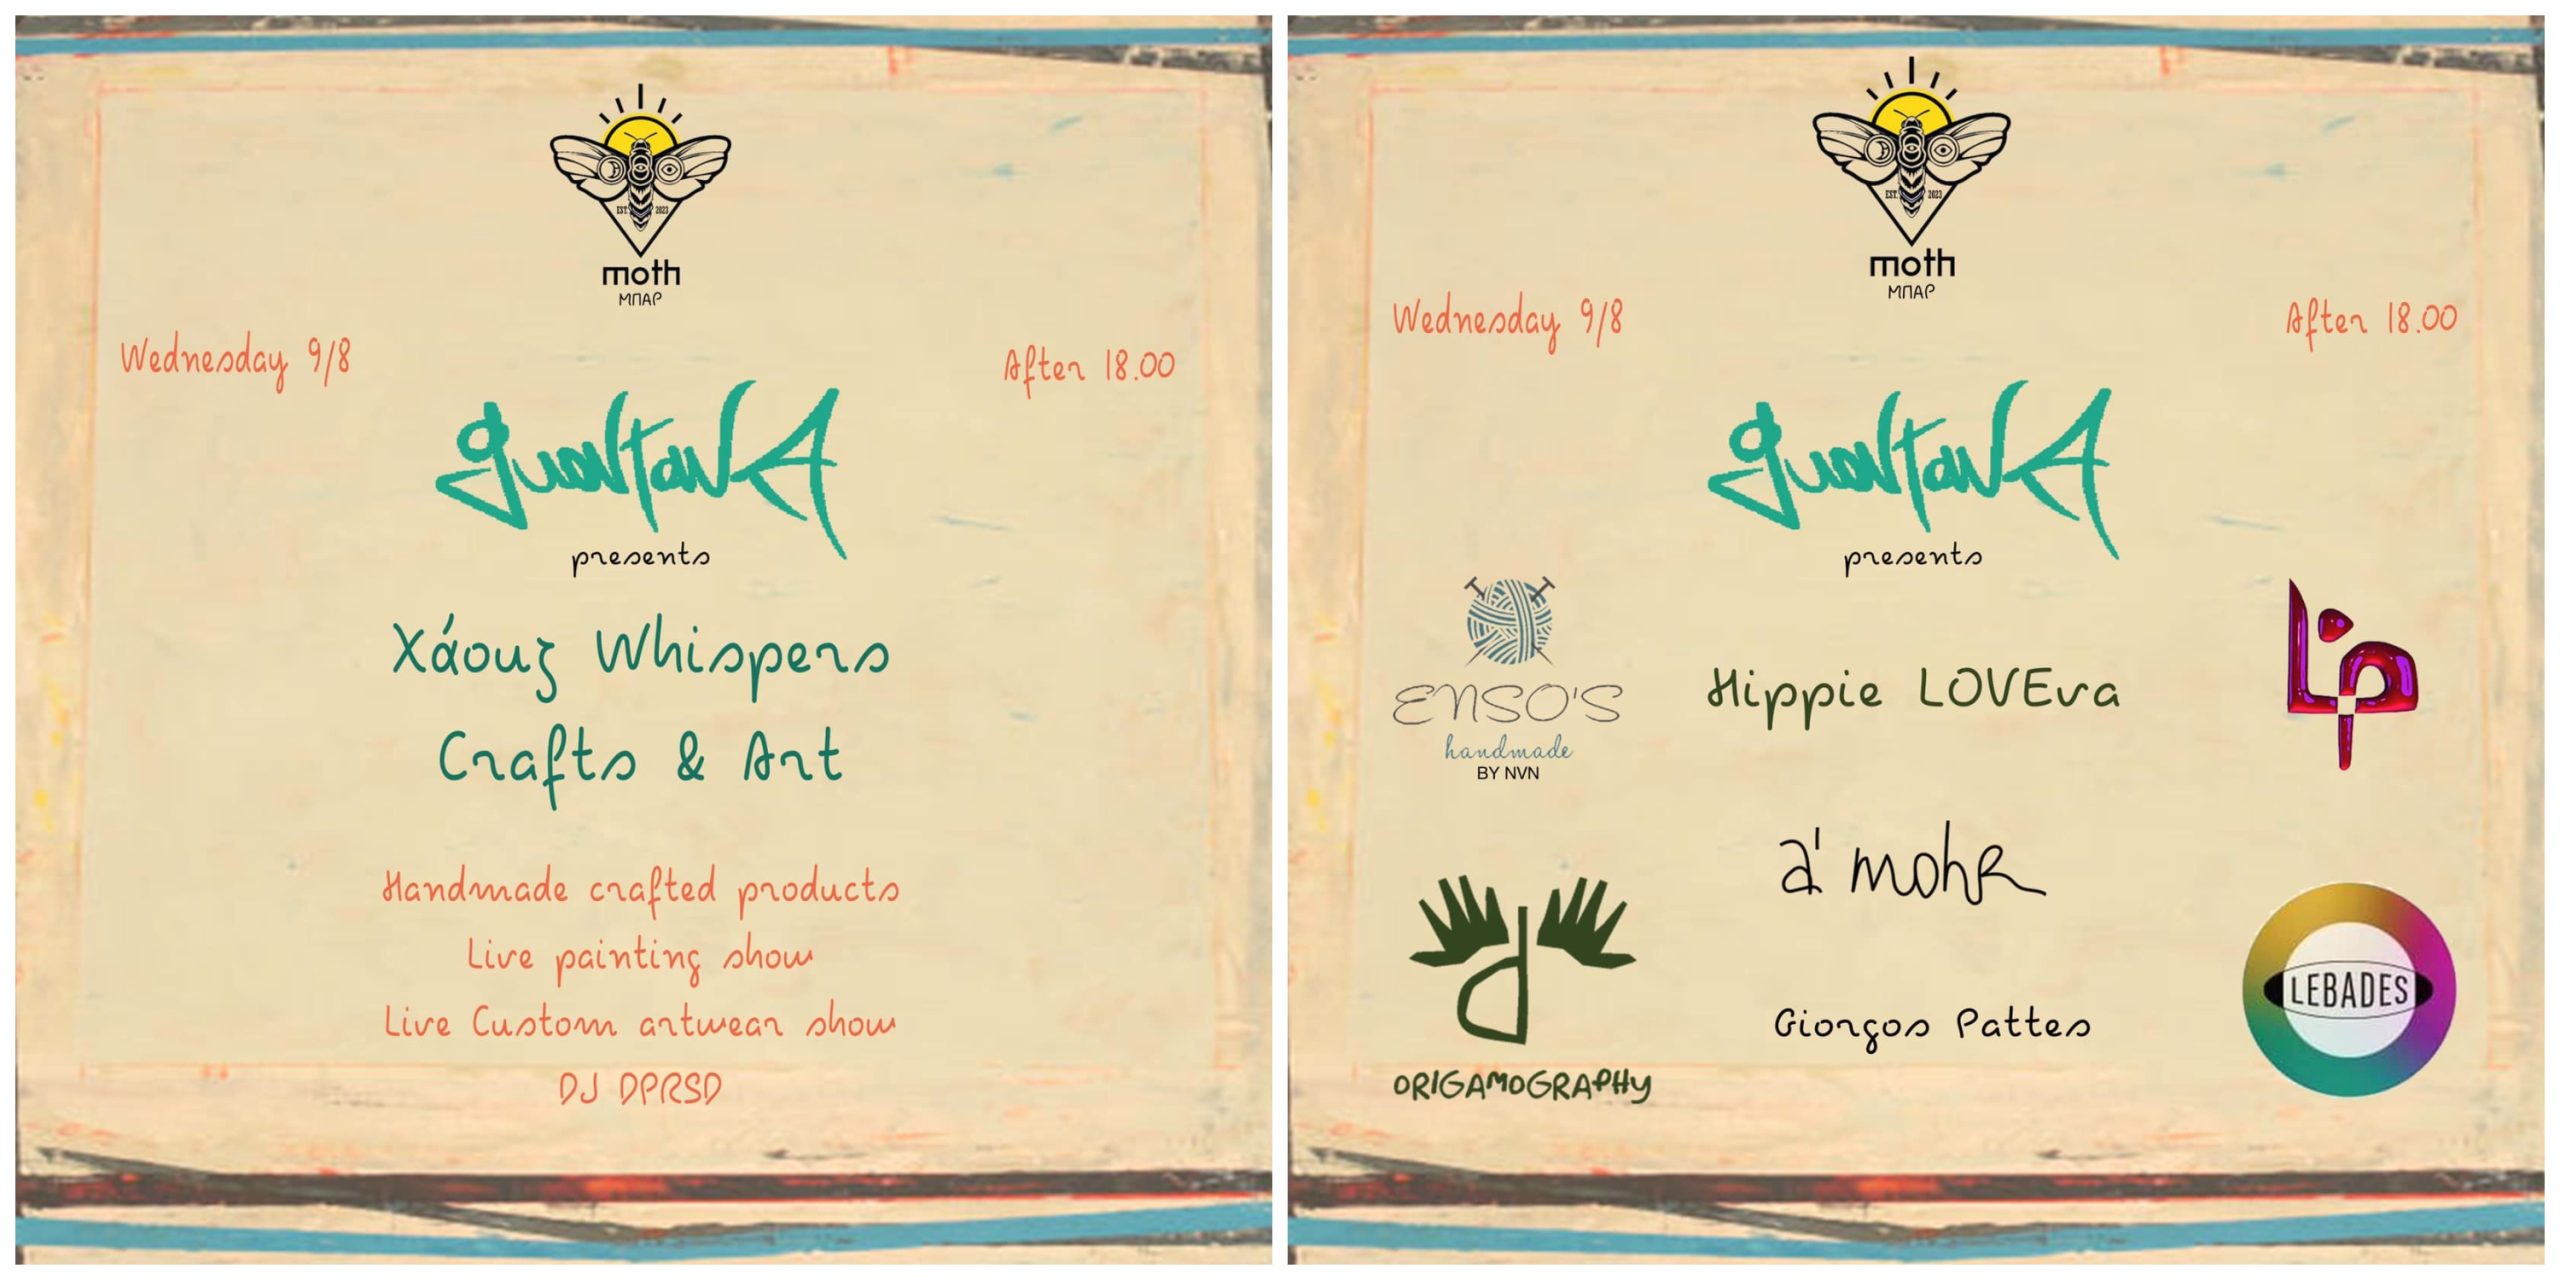 EST. 2023
moth
ΜΠΑΡ
Wednesday 9/8
After 18.00
presents
Χάους Whispers
Crafts & Art
Handmade crafted products
Live painting show
Live Custom artwear show
DJ DPRSD
EST. 2023
moth
ΜΠΑΡ
Wednesday 9/8
After 18.00
presents
ENSO'S
handmade
BY NVN
Hippie LOVEva
Lip
a' mohR
ORIGAMOGRAPHY
Giorgos Pattes
LEBADES